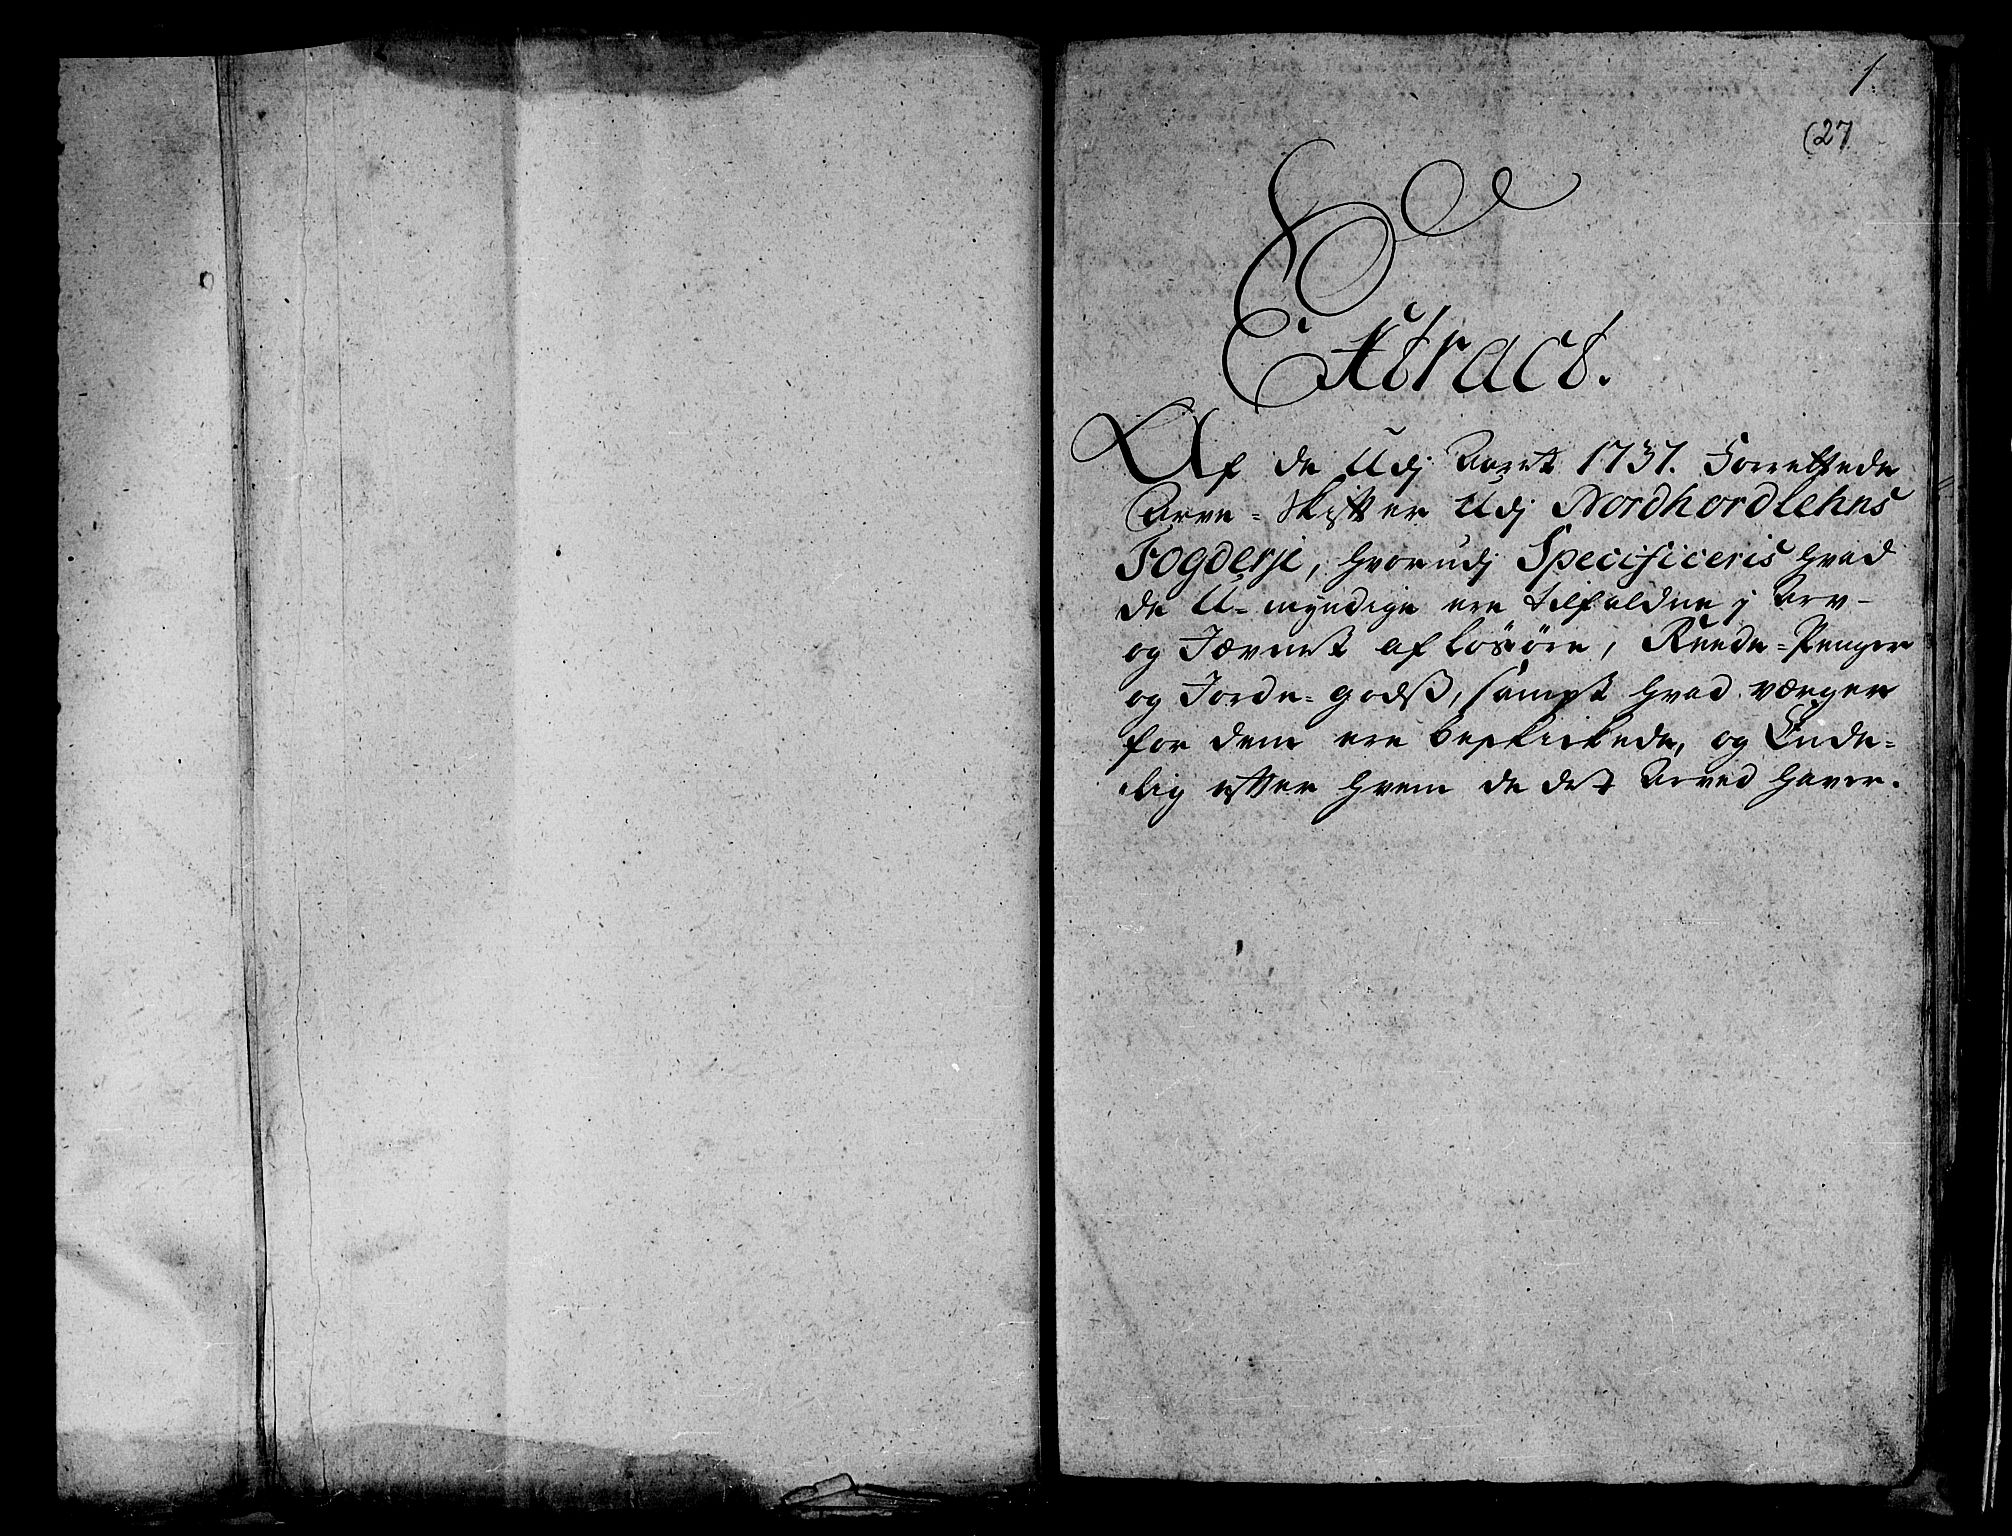 1.
(27
Extract.
Af de Udj Aaret 1737. Forrettede
Arve-Skifter Udj Nordhordlehns
Fogderje, hvorudj Specificeris hvad
de U-myndige ere tilfaldne j Arv-
og Jævnet af Løsøre, Reede-Penger
og Jorde-godß, sampt hvad værger
for dem ere beskickede, og Ende-
lig efter hvem de det Arved haver.